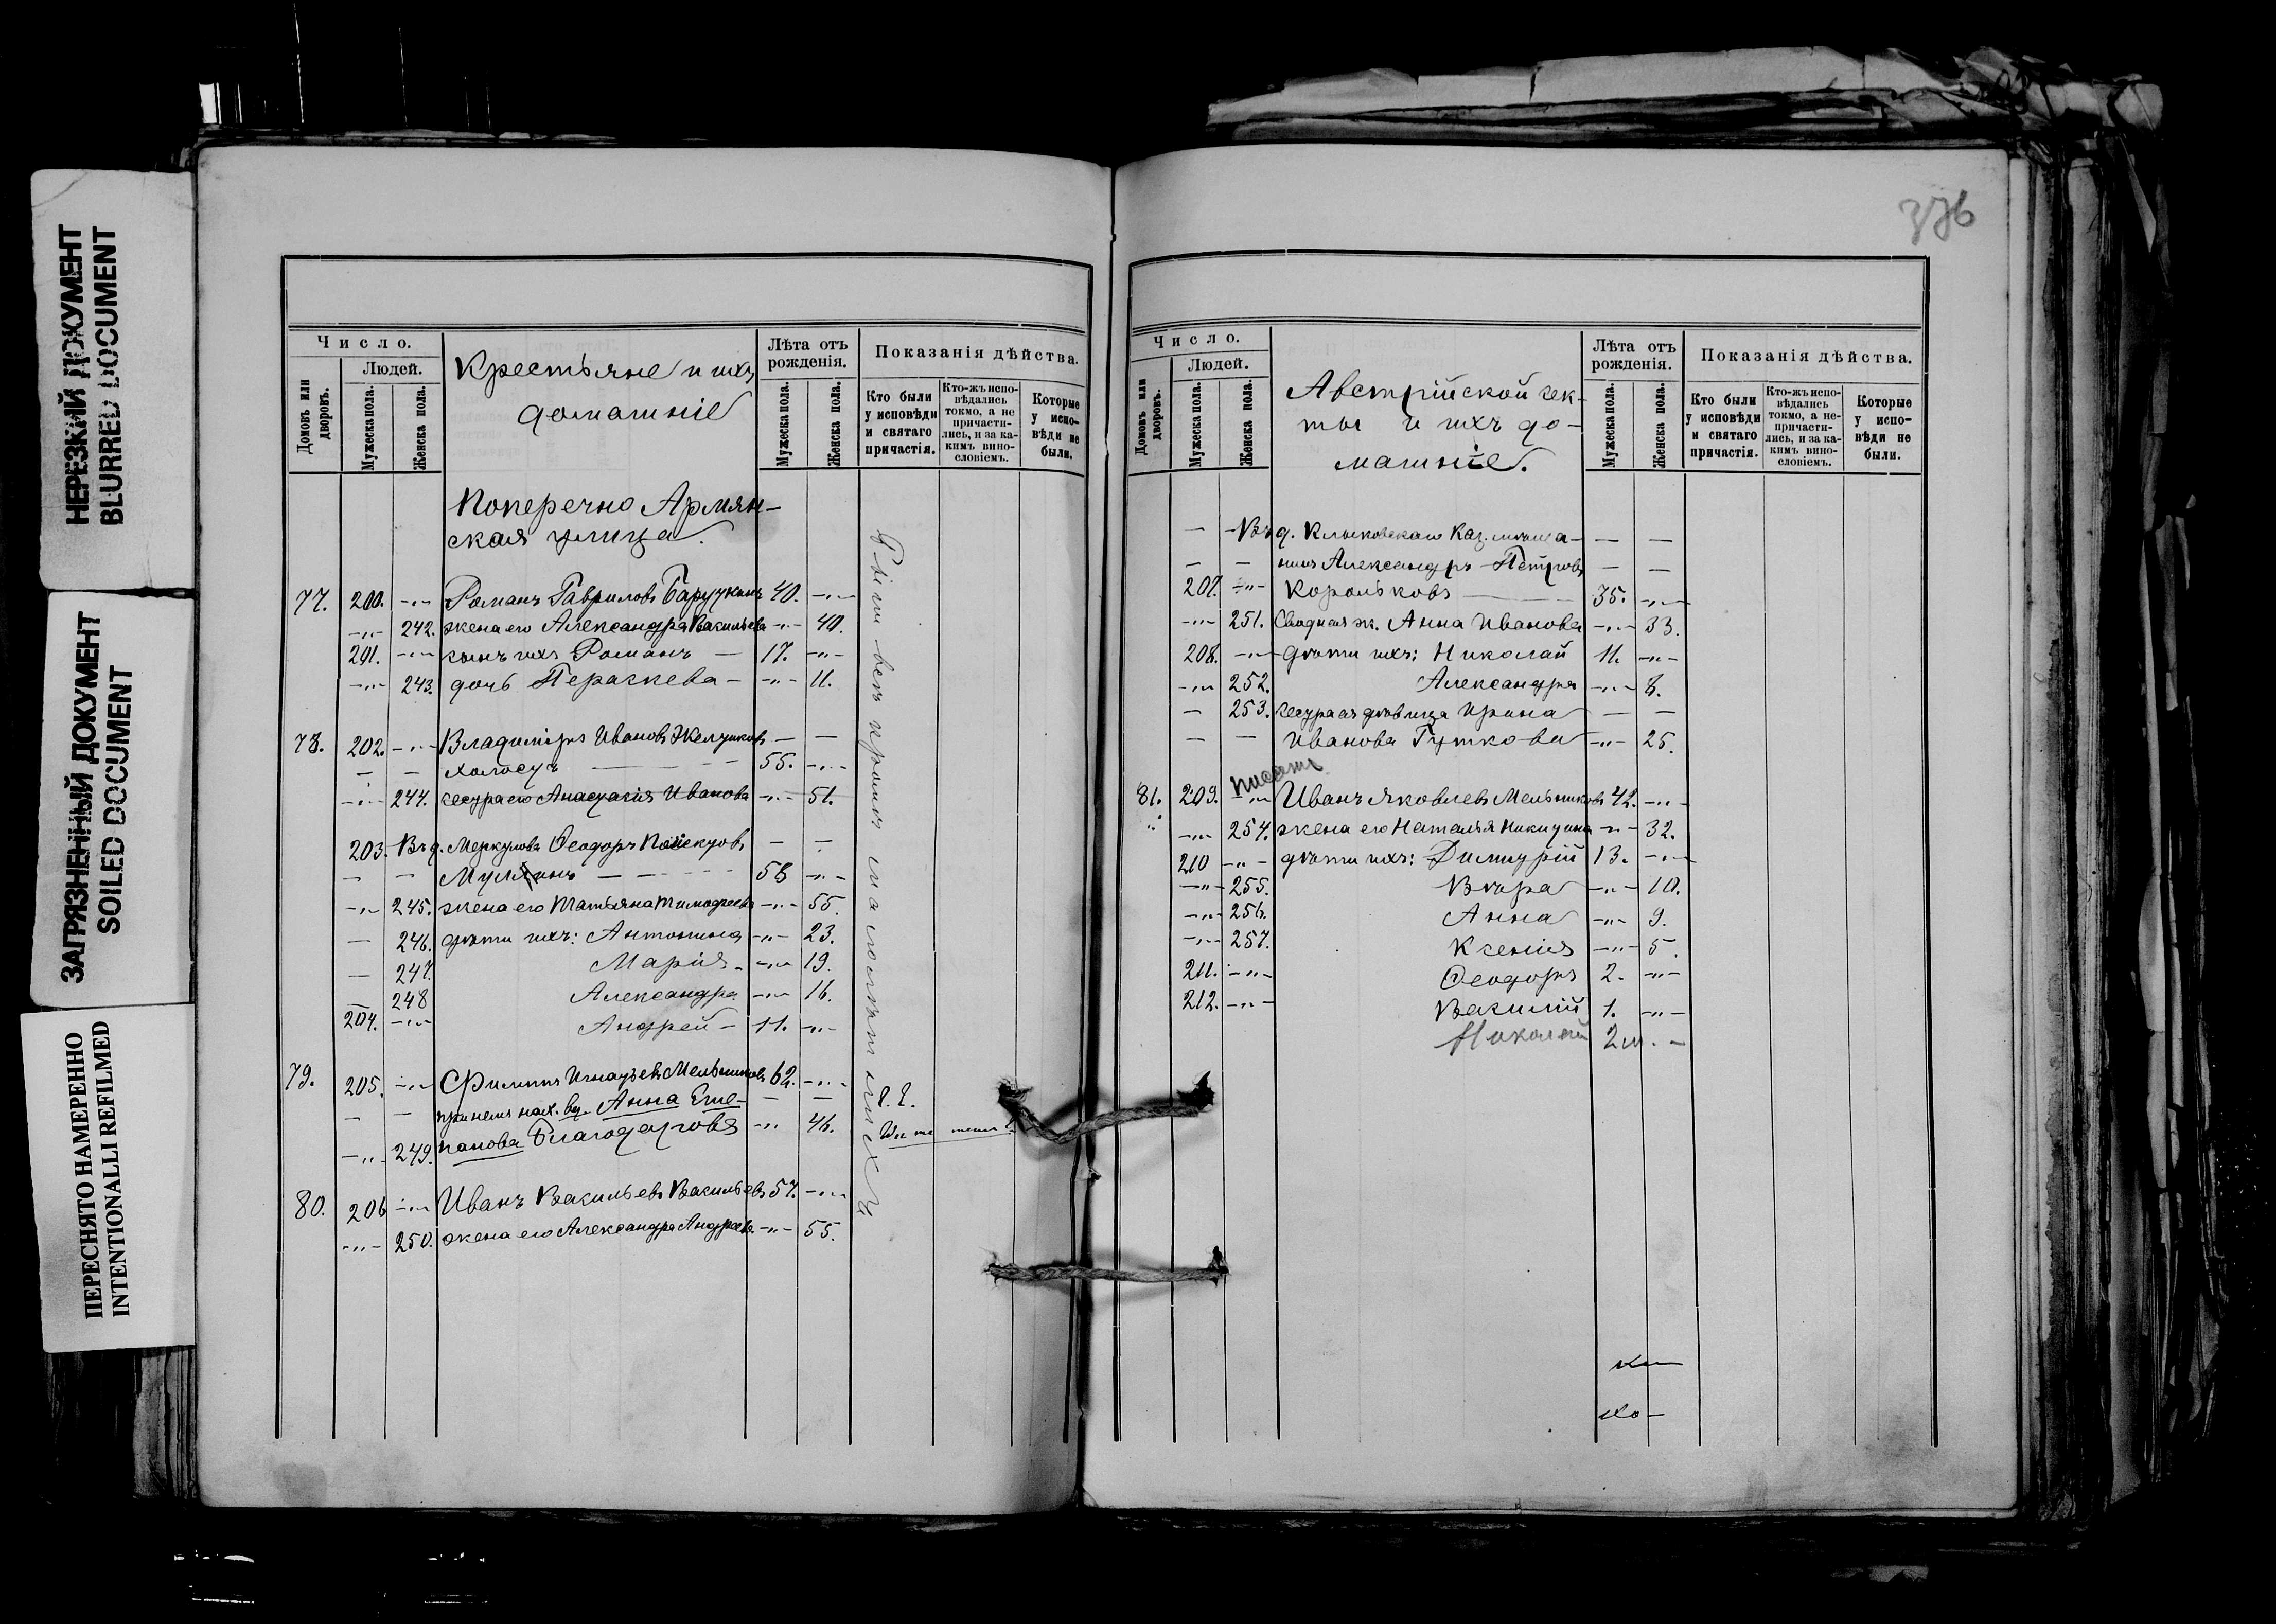 НЕРЕЗКИЙ ДОКУМЕНТ
BLURRED DOCUMENT
ЗАГРЯЗНЕННЫЙ ДОКУМЕНТ
SOILED DOCUMENT
ПЕРЕСНЯТО НАМЕРЕННО
INTENTIONALLI REFILMED
Число.
Людей.
Домовъ или дворовъ.
Мужеска пола.
Женска пола.
Крестьяне и ихъ
домашніе
Лѣта отъ рожденія.
Мужеска пола.
Женска пола.
Показанія дѣйства.
Кто были у исповѣди и святаго причастія.
Кто-жъ исповѣдались токмо, а не причастились, и за какимъ винословіемъ.
Которые у исповѣди не были.
Поперечно Армян-
ская улица.
77. 200. -"- Романъ Гавриловъ 40. -"-
-"- 242. жена его Александра Васильева -"- 40.
201. -"- сынъ ихъ Романъ — 17. -"-
-"- 243. дочь Параскева — -"- 11.
78. 202. -"- Владиміръ Ивановъ — —
— — холостъ — 55. -"-
-"- 244. сестра его Анастасія Иванова -"- 51.
203. Въ д. Меркулова Ѳеодоръ — —
— — 58 -"-
-"- 245. жена его Татьяна Тимофеева -"- 55.
— 246. дѣти ихъ: Антонина -"- 23.
— 247. Марія -"- 19.
— 248 Александра -"- 16.
204. -"- Андрей — 11. -"-
79. 205. -"- Филиппъ Игнатьевъ Мельниковъ 62. -"-
— — Анна Сте- — —
-"- 249. панова Благодарова -"- 46.
80. 206 -"- Иванъ Васильевъ Васильевъ 57. -"-
-"- 250. жена его Александра Андреева -"- 55.
Дѣти всѣ кромѣ малолѣтнихъ
376
Число.
Людей.
Домовъ или дворовъ.
Мужеска пола.
Женска пола.
Австрійской сек-
ты и ихъ до-
машніе.
Лѣта отъ рожденія.
Мужеска пола.
Женска пола.
Показанія дѣйства.
Кто были у исповѣди и святаго причастія.
Кто-жъ исповѣдались токмо, а не-причастились, и за какимъ винословіемъ.
Которые у исповѣди не были.
— Въ д. Каз. мѣща- — —
— — нинъ Александръ Петровъ — —
207. -"- Корольковъ — 35. -"-
-"- 251. Сводная ж. Анна Иванова -"- 33.
208. -"- дѣти ихъ: Николай 11. -"-
-"- 252. Александра -"- 8.
— 253. сестра ея дѣвица Ирина — —
— — Иванова Гуткова -"- 25.
81. 209. -"- Иванъ Яковлевъ Мельниковъ 42. -"-
-"- 254. жена его Наталья Никитина -"- 32.
210 -"- дѣти ихъ: Димитрій 13. -"-
-"- 255. Вѣра -"- 10.
-"- 256. Анна -"- 9.
-"- 257. Ксенія -"- 5.
211. -"- Ѳеодоръ 2. -"-
212. -"- Василій 1. -"-
Николай 2 м. —